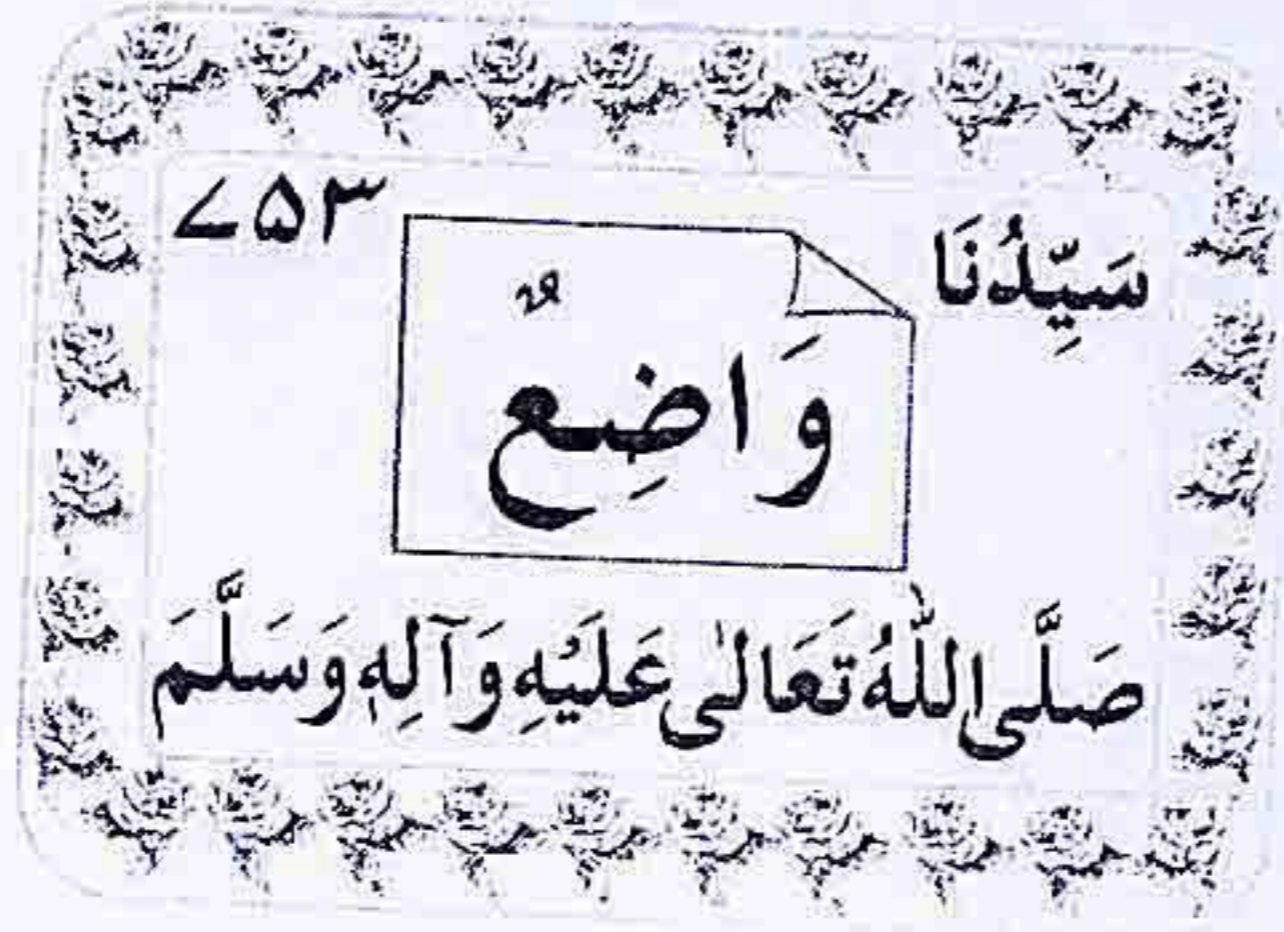 سَيِّدُنَا
۷۵۳
وَاضِعٌ
صَلَّى اللّٰهُ تَعَالٰى عَلَيْهِ وَآلِهٖ وَسَلَّمَ